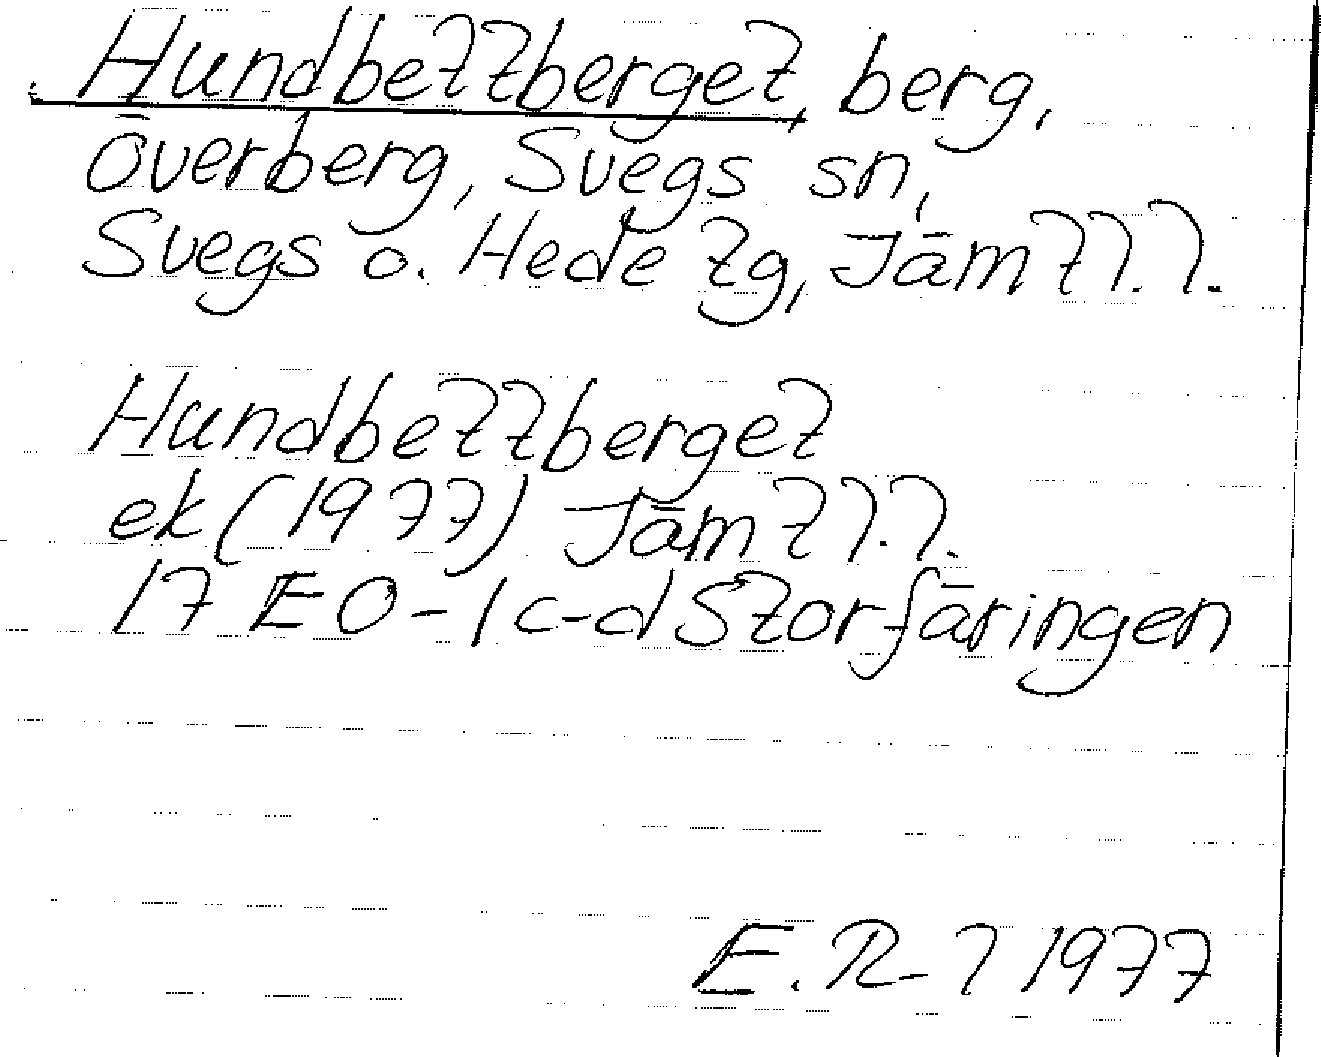 Hundbettberget, berg,
Överberg, Svegs sn,
Svegs o. Hede tg, Jämtl.l.
Hundbettberget
ek (1977) Jämtl.l.
17 E 0-1 c-d Storfäringen
E. R-l 1977